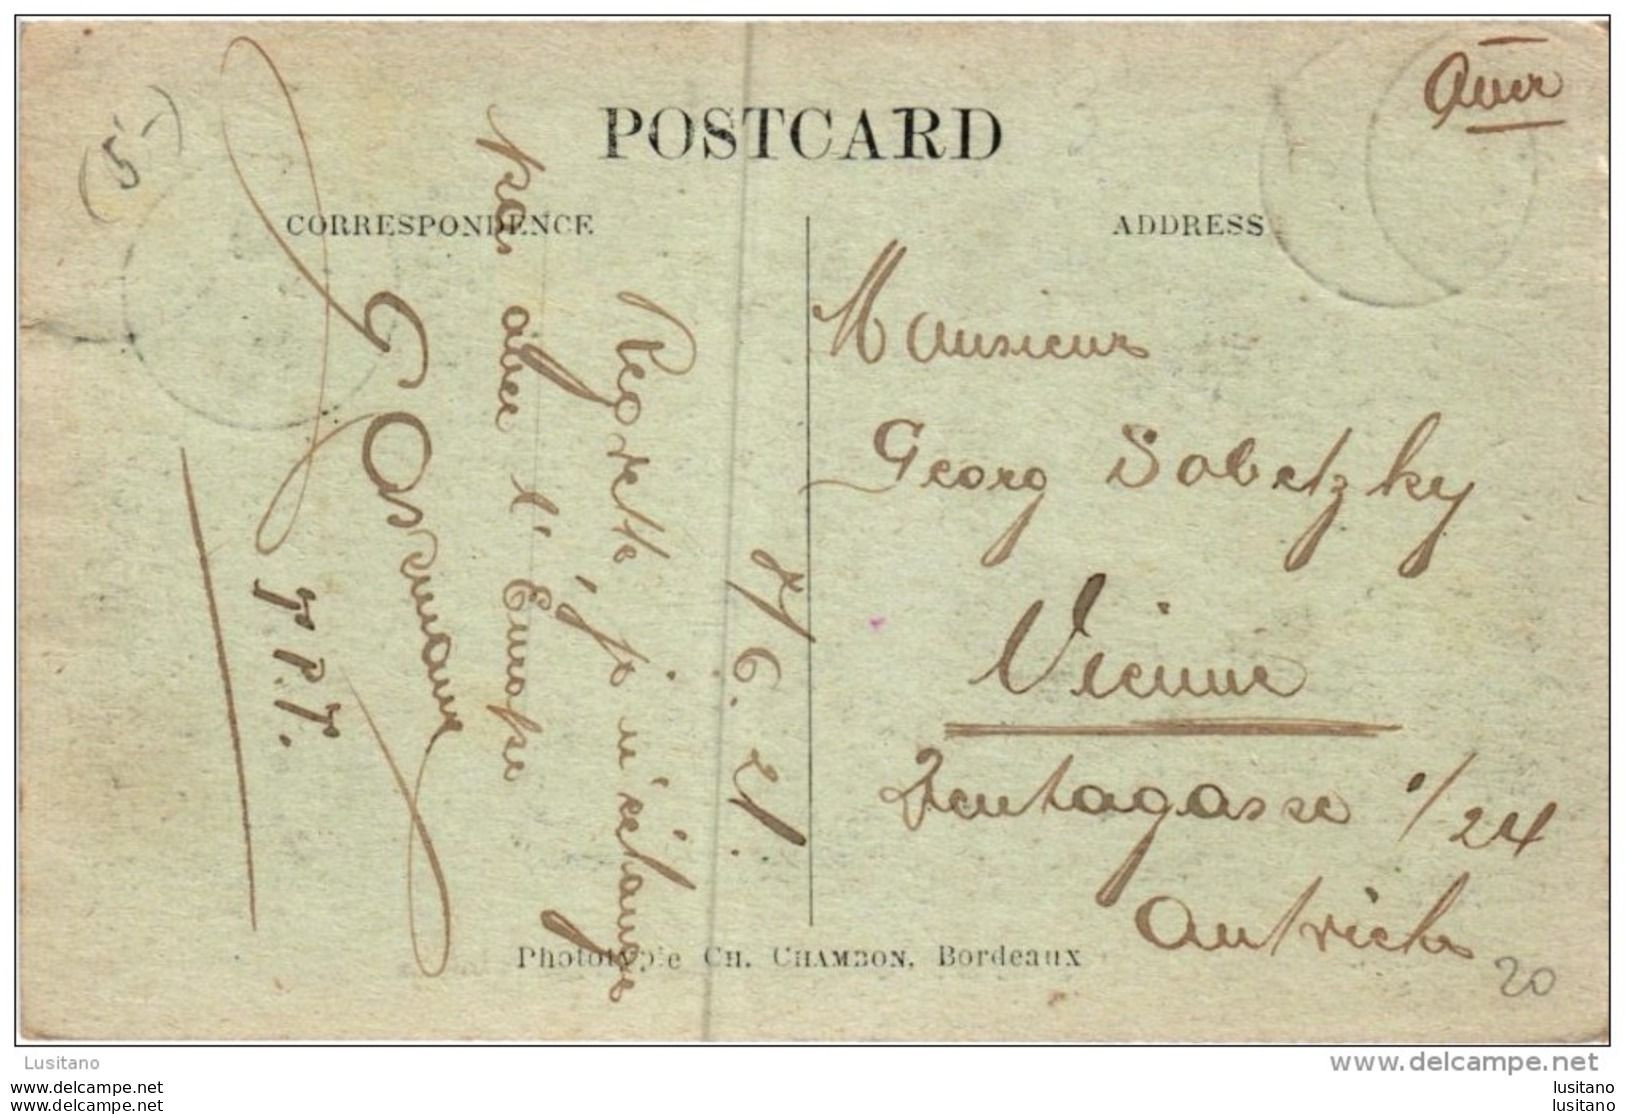 (5-)
Auer
POSTCARD
CORRESPONDENCE
ADDRESS
7/6.21.
Regrette, je n'échange
pas avec l'Europe
T.P.T.
Monsieur
Georg Sobetzky
Vienne
Zentagasse 1/24
Autriche
Phototypie CH. CHAMBON, Bordeaux
20
Lusitano
www.delcampe.com
www.delcampe.com
www.delcampe.net
lusitano
lusitano